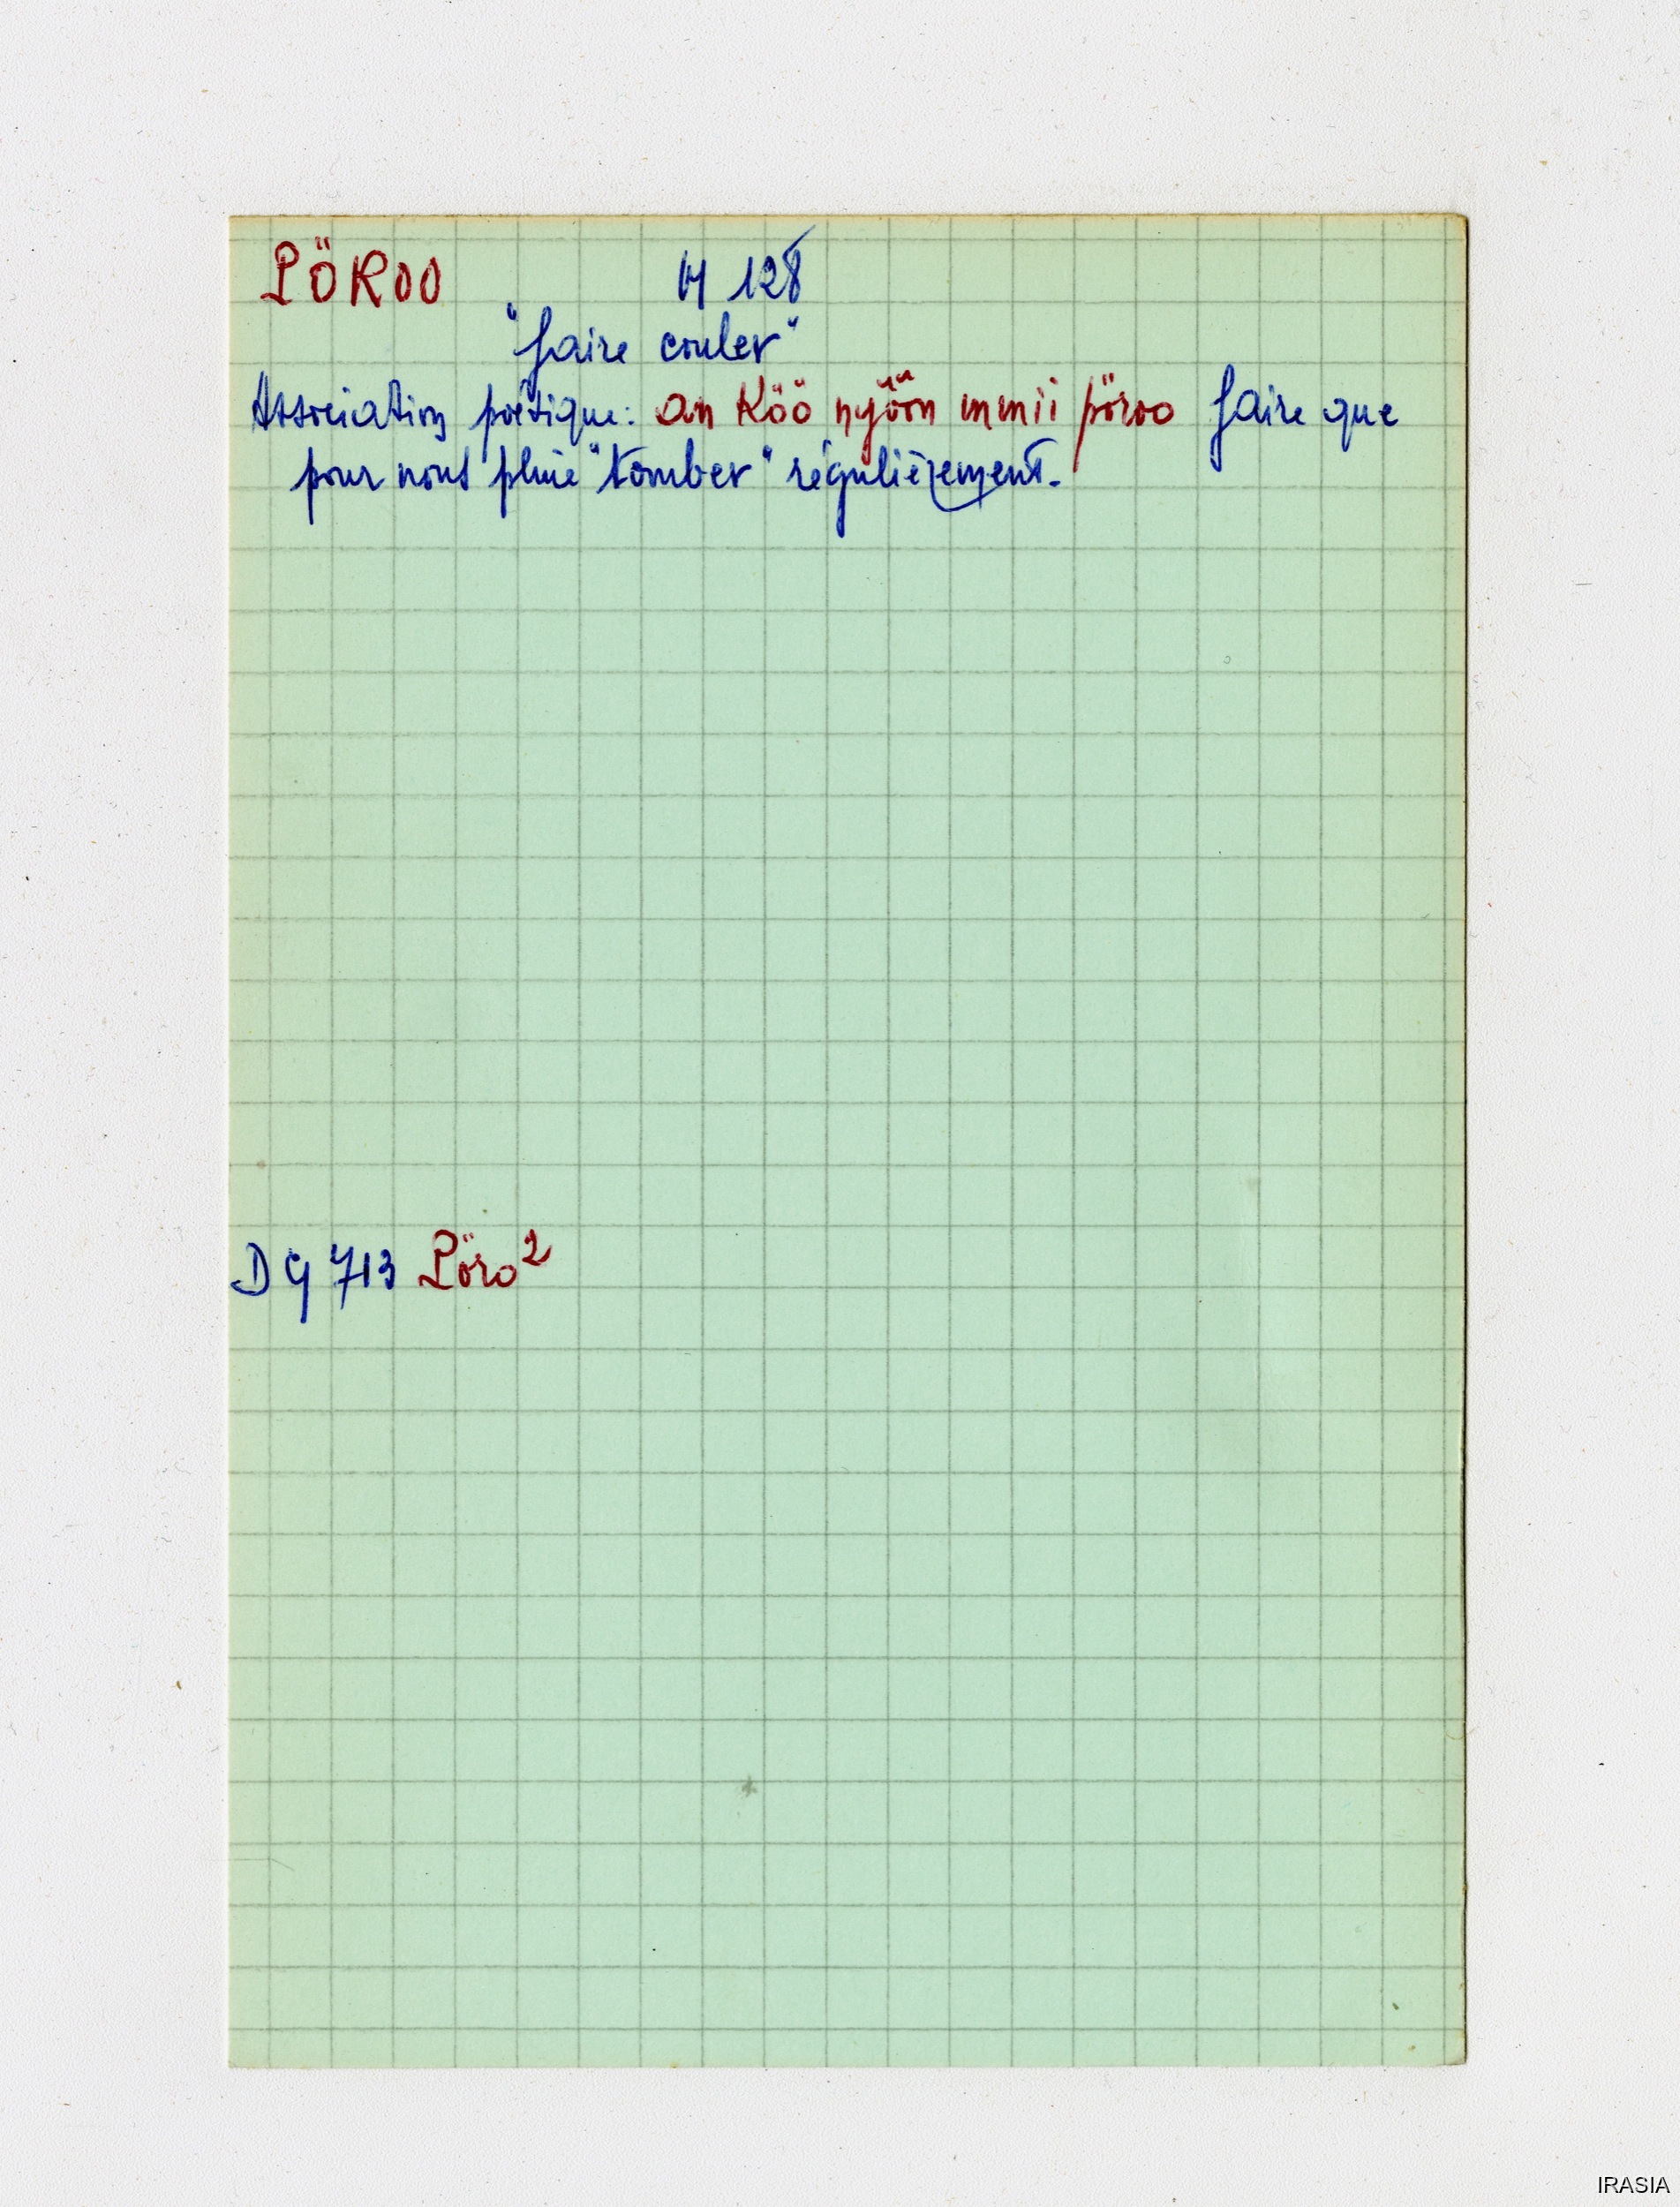 PÖROO H 128
"faire couler"
Association poétique: an Köö nyöön mmii pöroo faire que
pour nous pluie "tomber" régulièrement.
DG 713 Pöro²
IRASIA